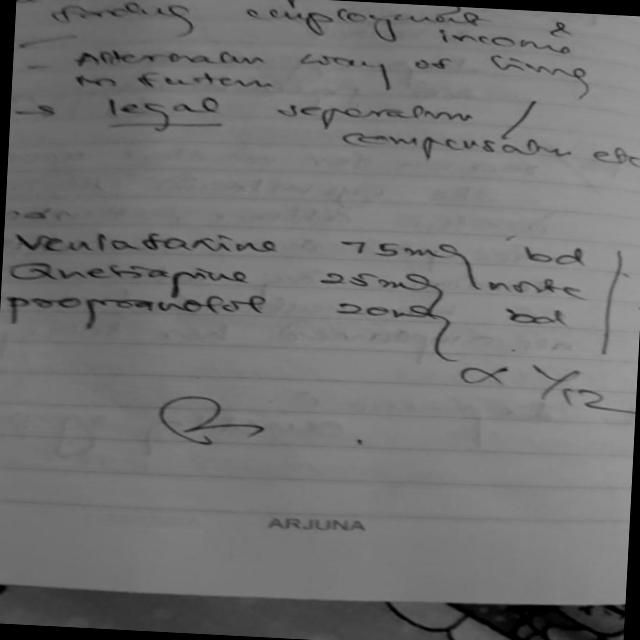 employment &
income
- Alternative way of living
in future
→ legal separation /
compensation etc
Venlafaxine 75mg bd
Quetiapine 25mg nocte
propranolol 20mg bd
x 1/12
ARJUNA